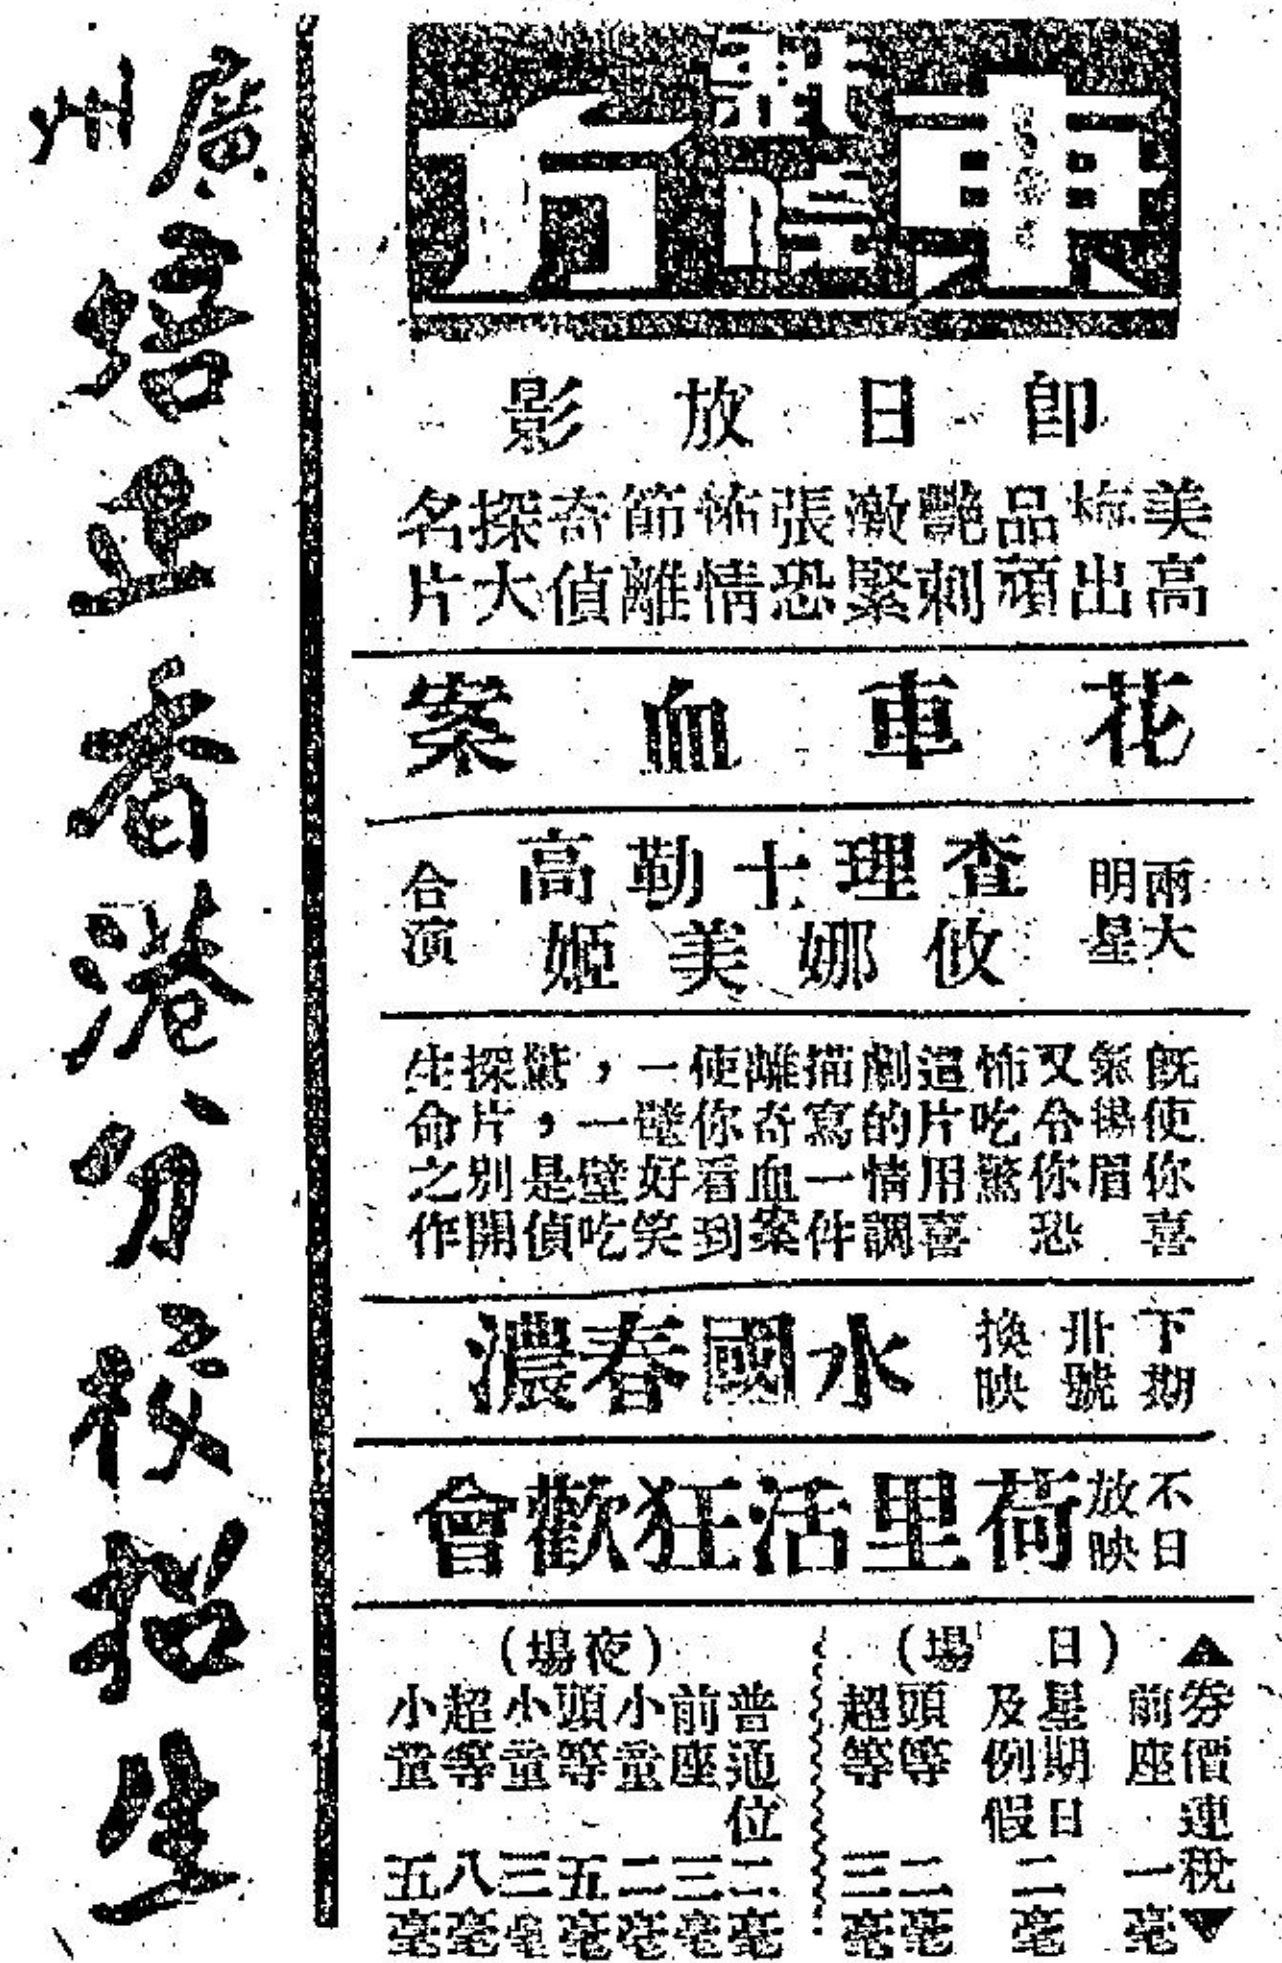 東方戲院
即日放影
美高
梅出
品頑
艷刺
激緊
張恐
怖情
節離
奇偵
探大
名片
花車血案
兩大明星
查理士勒高
攸娜美姬
合演
既使你喜
氣揚眉
又令你恐
怖吃驚
這片用喜
劇的情調
描寫一件
離奇血案
使你看到
一譬好笑
一壁吃
驚,是偵
探片,別開
生命之作
下期
卅號
換映
水國春濃
不日放映
荷里活狂歡會
▲券價連稅▼
(日場)
前座 一毫
星期日及例假 二毫
頭等 二毫
超等 三毫
(夜場)
普通位 二毫
前座 三毫
小童 二毫
頭等 五毫
小童 三毫
超等 八毫
小童 五毫
廣州培正香港分校招生